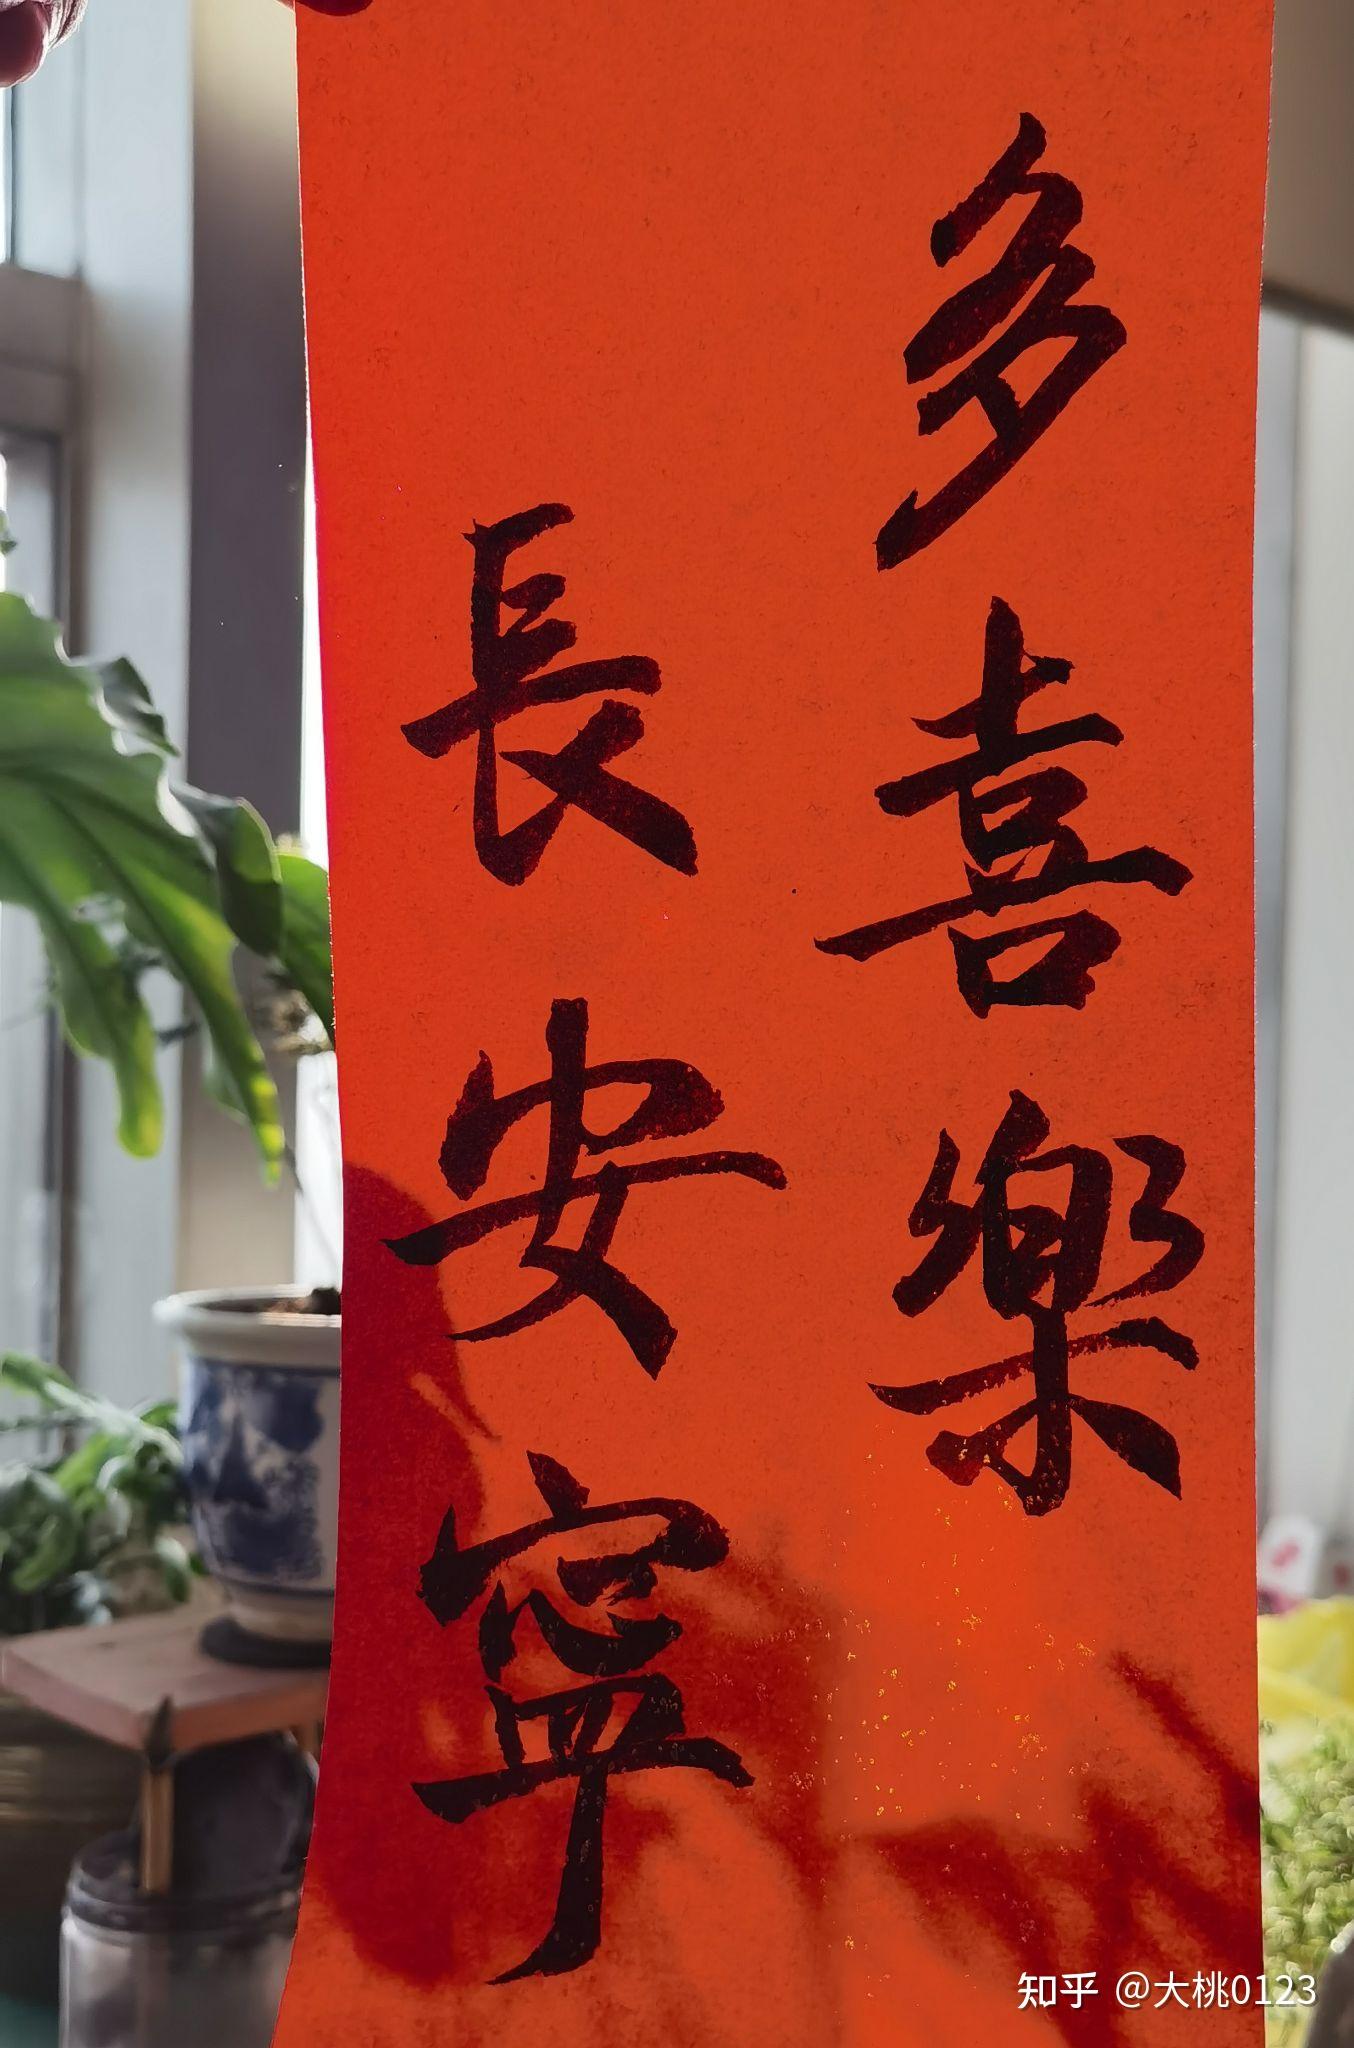 多喜樂
長安寧
知乎 @大桃0123